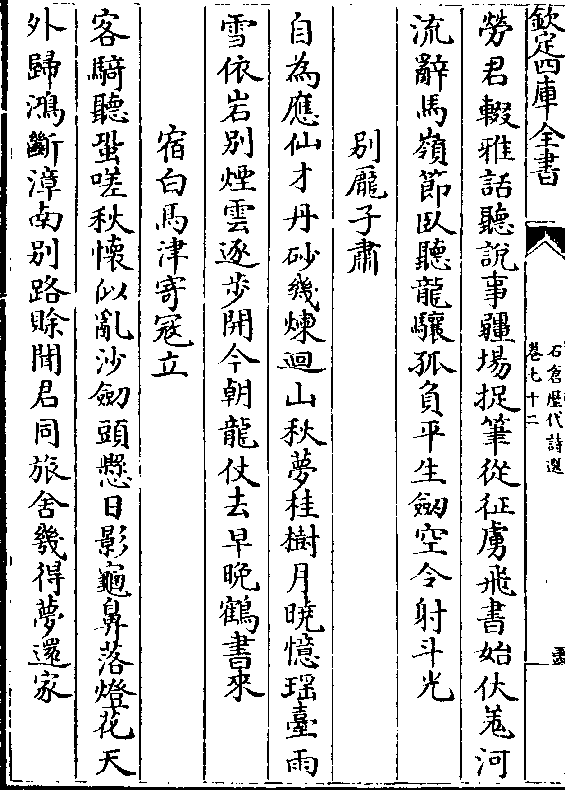 欽定四庫全書
石倉歷代詩選
卷七十二
勞君輟雅話聽說事疆場捉筆從征虜飛書始伏羌河
流辭馬嶺節臥聽龍驤孤負平生劒空令射斗光
別龎子肅
自為應仙才丹砂幾煉迴山秋夢桂樹月曉憶瑶臺雨
雪依岩別煙雲逐步開今朝龍仗去早晚鶴書來
宿白馬津寄寇立
客騎聽蛩嗟秋懷似亂沙劒頭懸日影龜鼻落燈花天
外歸鴻斷漳南別路賒聞君同旅舍幾得夢還家